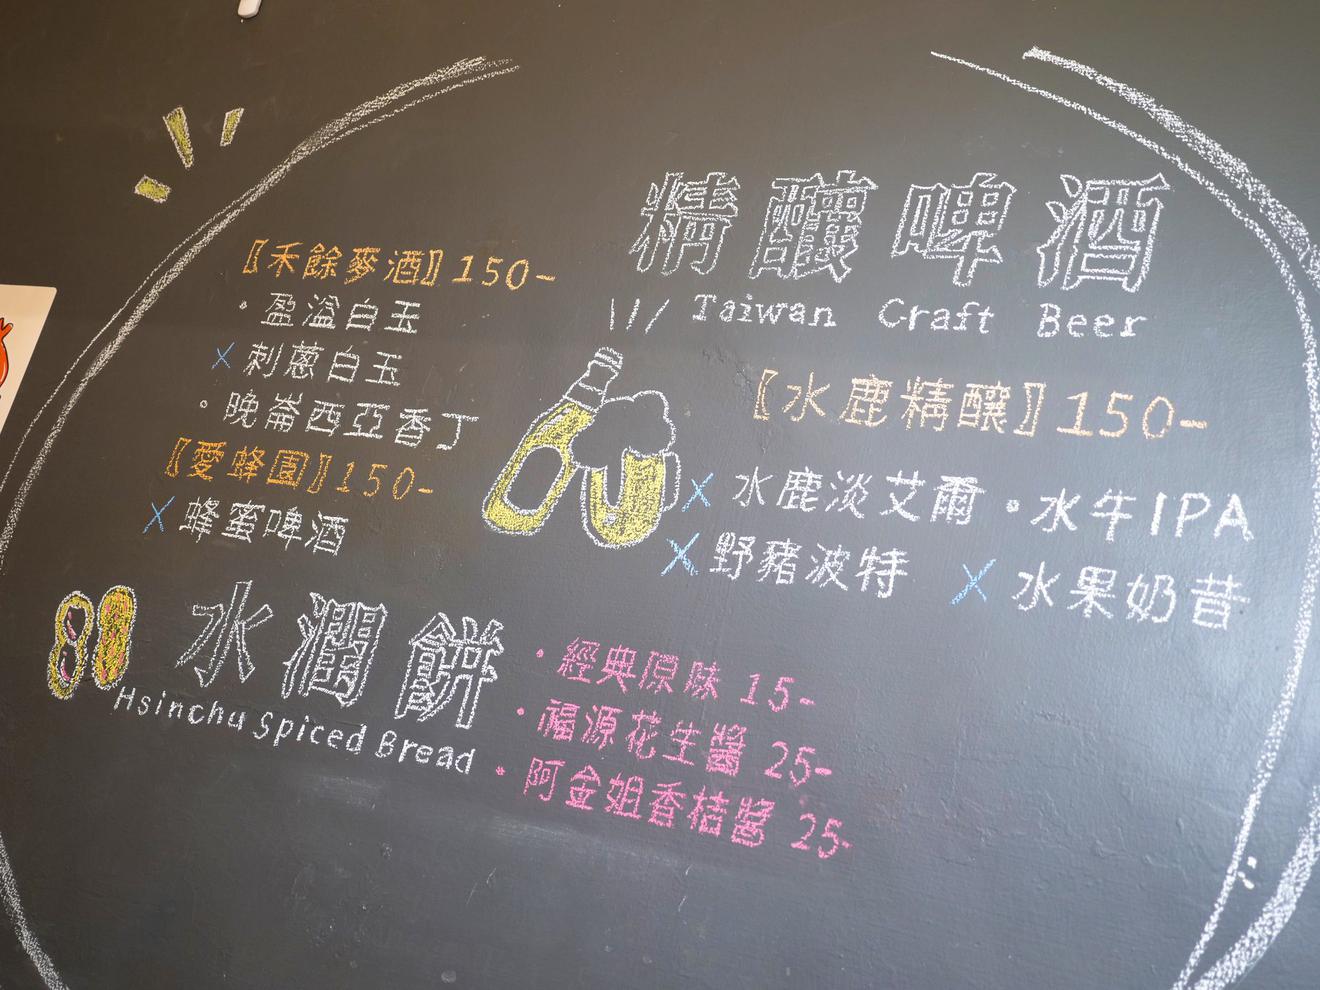 精釀啤酒
Taiwan Craft Beer
〖禾餘麥酒〗150-
• 盈溢白玉
× 刺蔥白玉
• 晚崙西亞香丁
〖愛蜂園〗150-
× 蜂蜜啤酒
〖水鹿精釀〗150-
× 水鹿淡艾爾 • 水牛IPA
× 野豬波特 × 水果奶昔
水潤餅
Hsinchu Spiced Bread
• 經典原味 15-
• 福源花生醬 25-
• 阿金姐香桔醬 25-